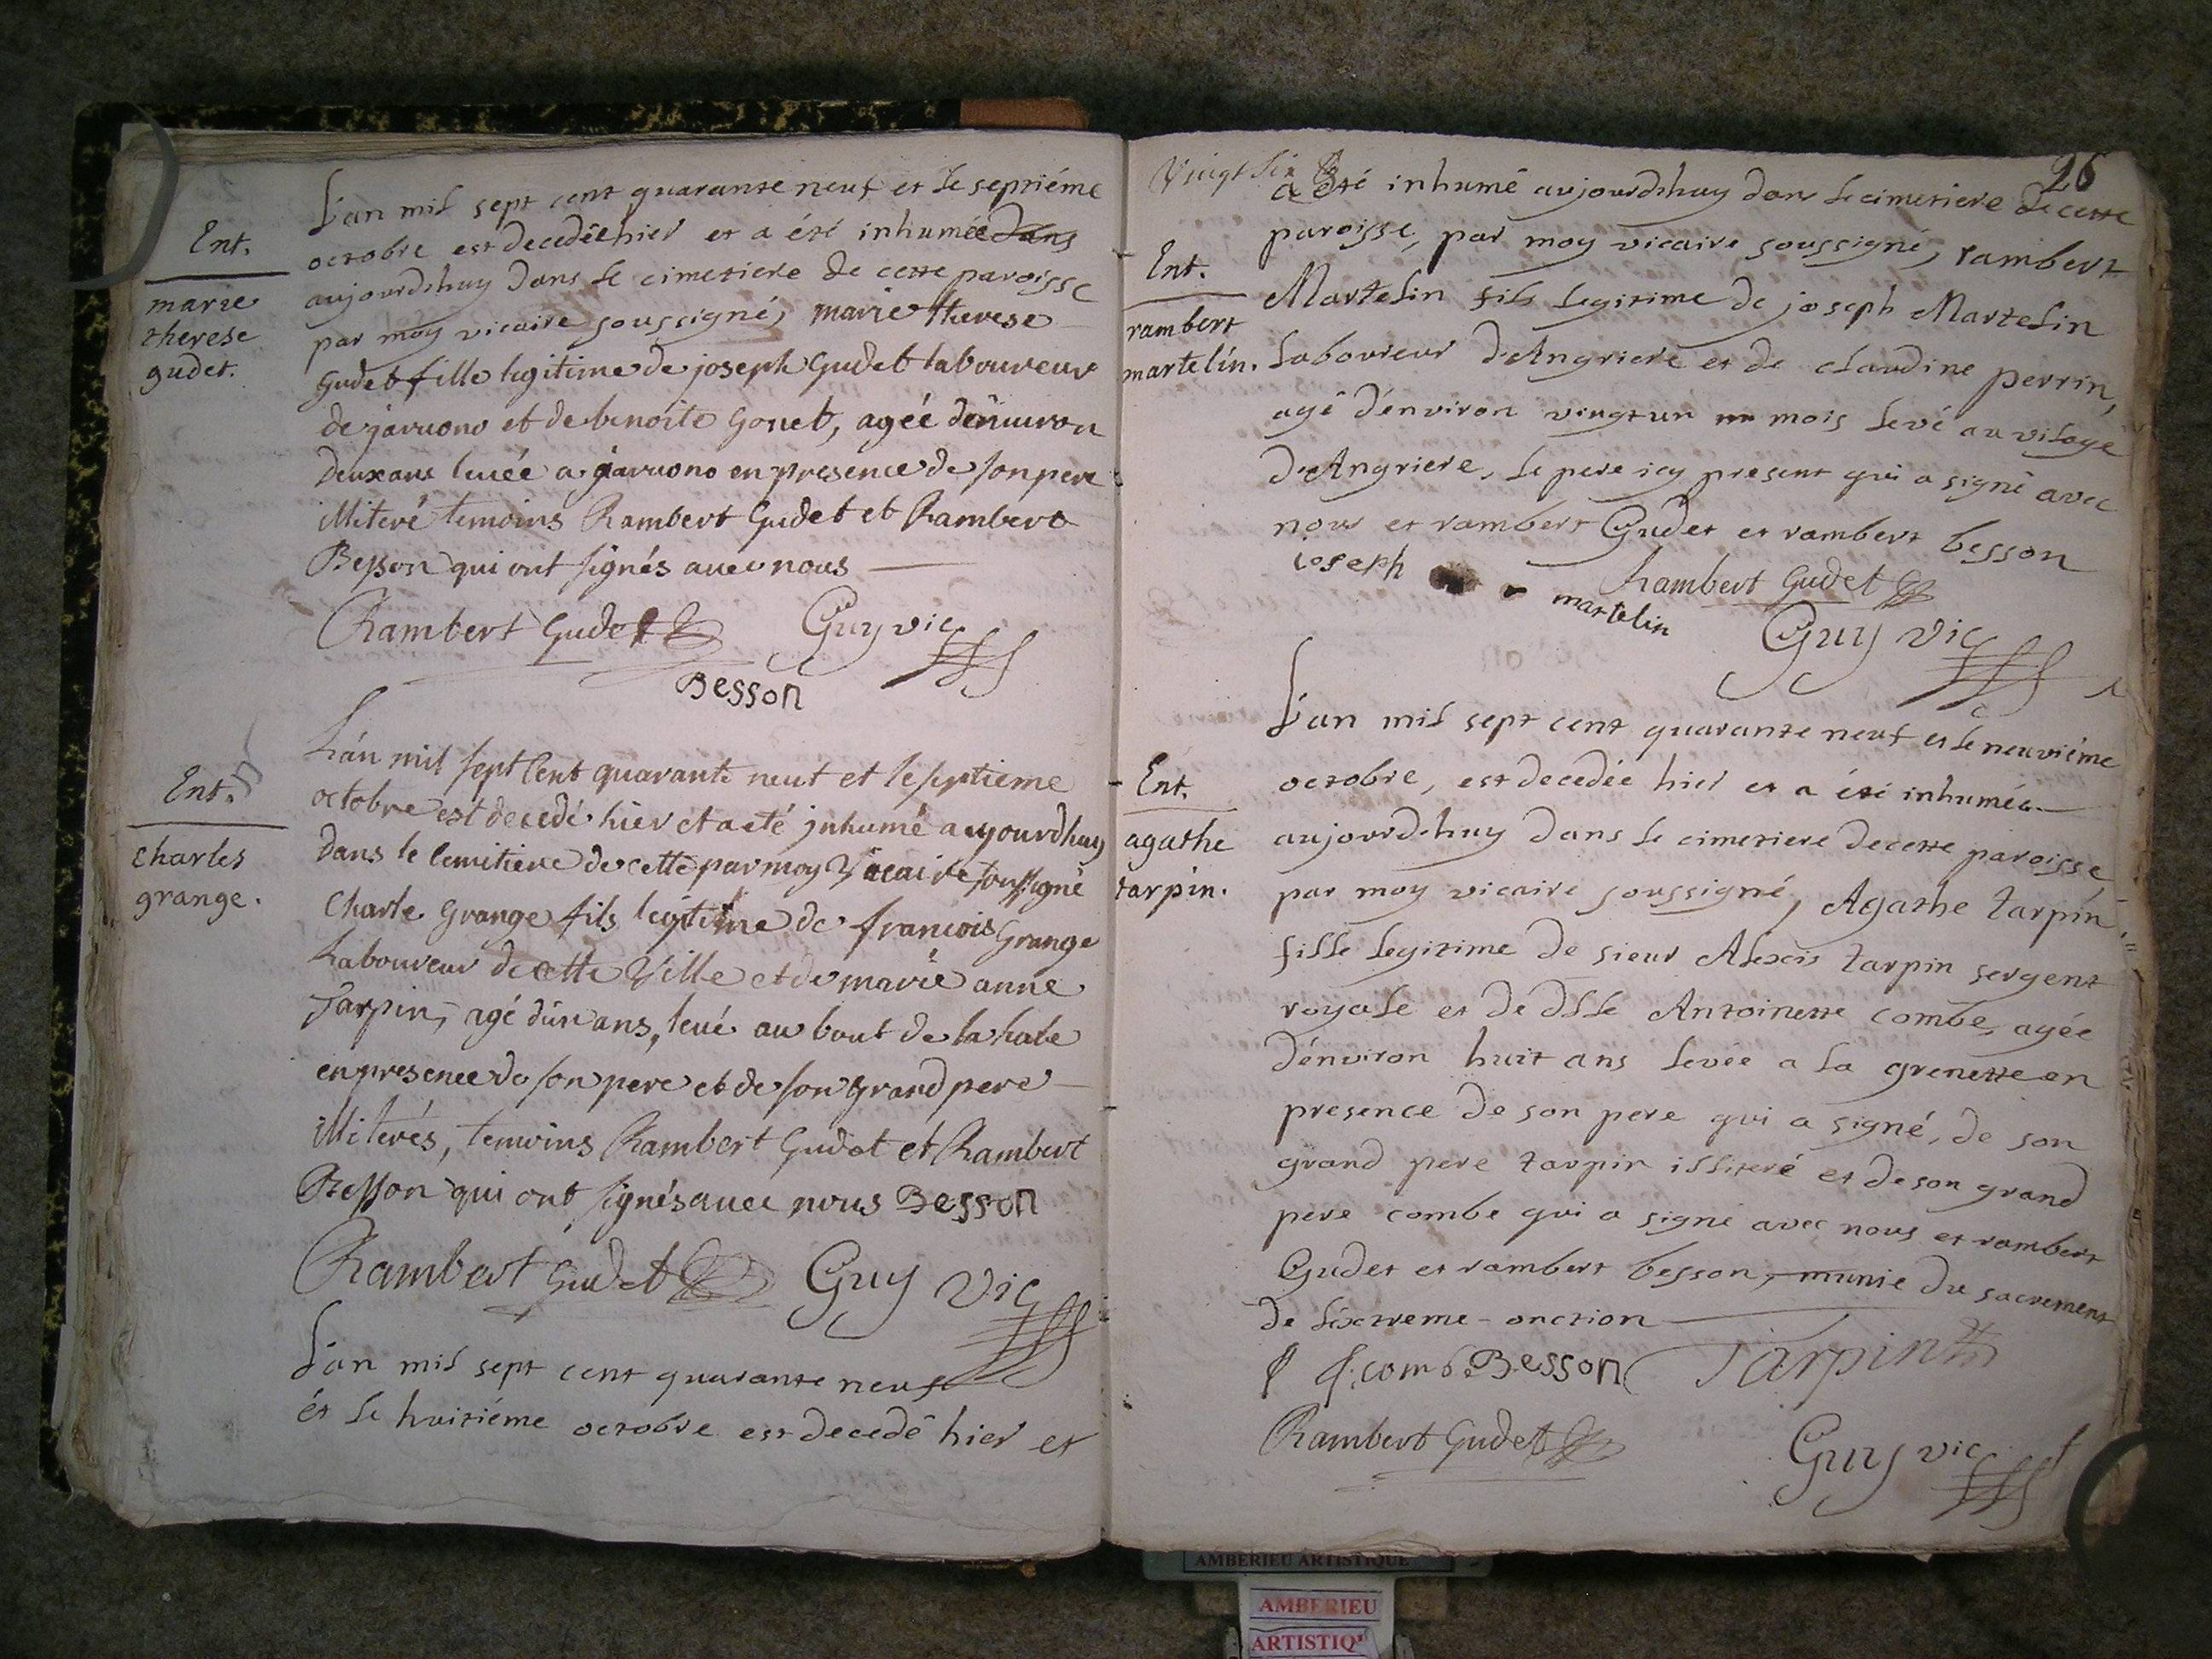 L'an mil sept cent quarante neuf et le septiéme
Ent.
octobre est decedée hier et a été inhumée dans
aujourdhuy dans le cimetiere de cette paroisse
marie
therese
gudet.
par moy vicaire soussigné, marie therese
Gudet fille legitime de joseph Gudet laboureur
de javuono et de benoite Gonet, agéé dénuiron
deux ans leuée a javuono en presence de son pere
illiteré temoins Rambert Gudet et Rambert
Besson qui ont signés auec nous
Rambert Gudet Guy vic
Besson
L'an mil sept Cent quarante neuf et le septieme
Ent.
octobre est decedé hier et a eté jnhumé aujourdhuy
dans le Cemitiere de cette par moy Vicaire soussigné
charles
grange.
Charle Grange fils legitime de francois Grange
Laboureur de cette Ville et de marie anne
Tarpin, agé dûn ans, leué au bout de la hale
en presence de son pere et de son grand pere
illiterés, temoins Rambert Gudet et Rambert
Besson qui ont signés auec nous Besson
Rambert Gudet Guy Vic
L'an mil sept cent quarante neuf
ét le huitiéme octobre est decedé hier et
Vingt six
26
a été inhumé aujourdhuy dans le cimetiere de cette
paroisse, par moy vicaire soussigné, rambert
Ent.
rambert
martelin.
Martelin fils legitime de joseph Martelin
laboureur d'Angriere et de claudine perrin,
agé d'énviron vingt un mois levé au vilage
d'Angriere, le pere icy present qui a signé avec
nous et rambert Gudet et rambert besson
ioseph martelin Rambert Gudet
Guy vic
L'an mil sept cent quarante neuf et le neuviéme
Ent.
octobre, est decedée hier et a été inhumée
aujourdhuy dans le cimetiere de cette paroisse,
agathe
tarpin.
par moy vicaire soussigné, Agathe tarpin
fille legitime de sieur Alexis tarpin sergent
royale et de dlle Antoinette combe, agée
d'énviron huit ans levée a la grenette en
presence de son pere qui a signé, de son
grand pere tarpin illiteré et de son grand
pere combe qui a signé avec nous et rambert
Gudet et rambert besson, munie du sacrement
de l'éxtreme-onction
combe Besson Tarpin
Rambert Gudet Guy vic
AMBERIEU ARTISTIQUE
AMBERIEU
ARTISTIQU